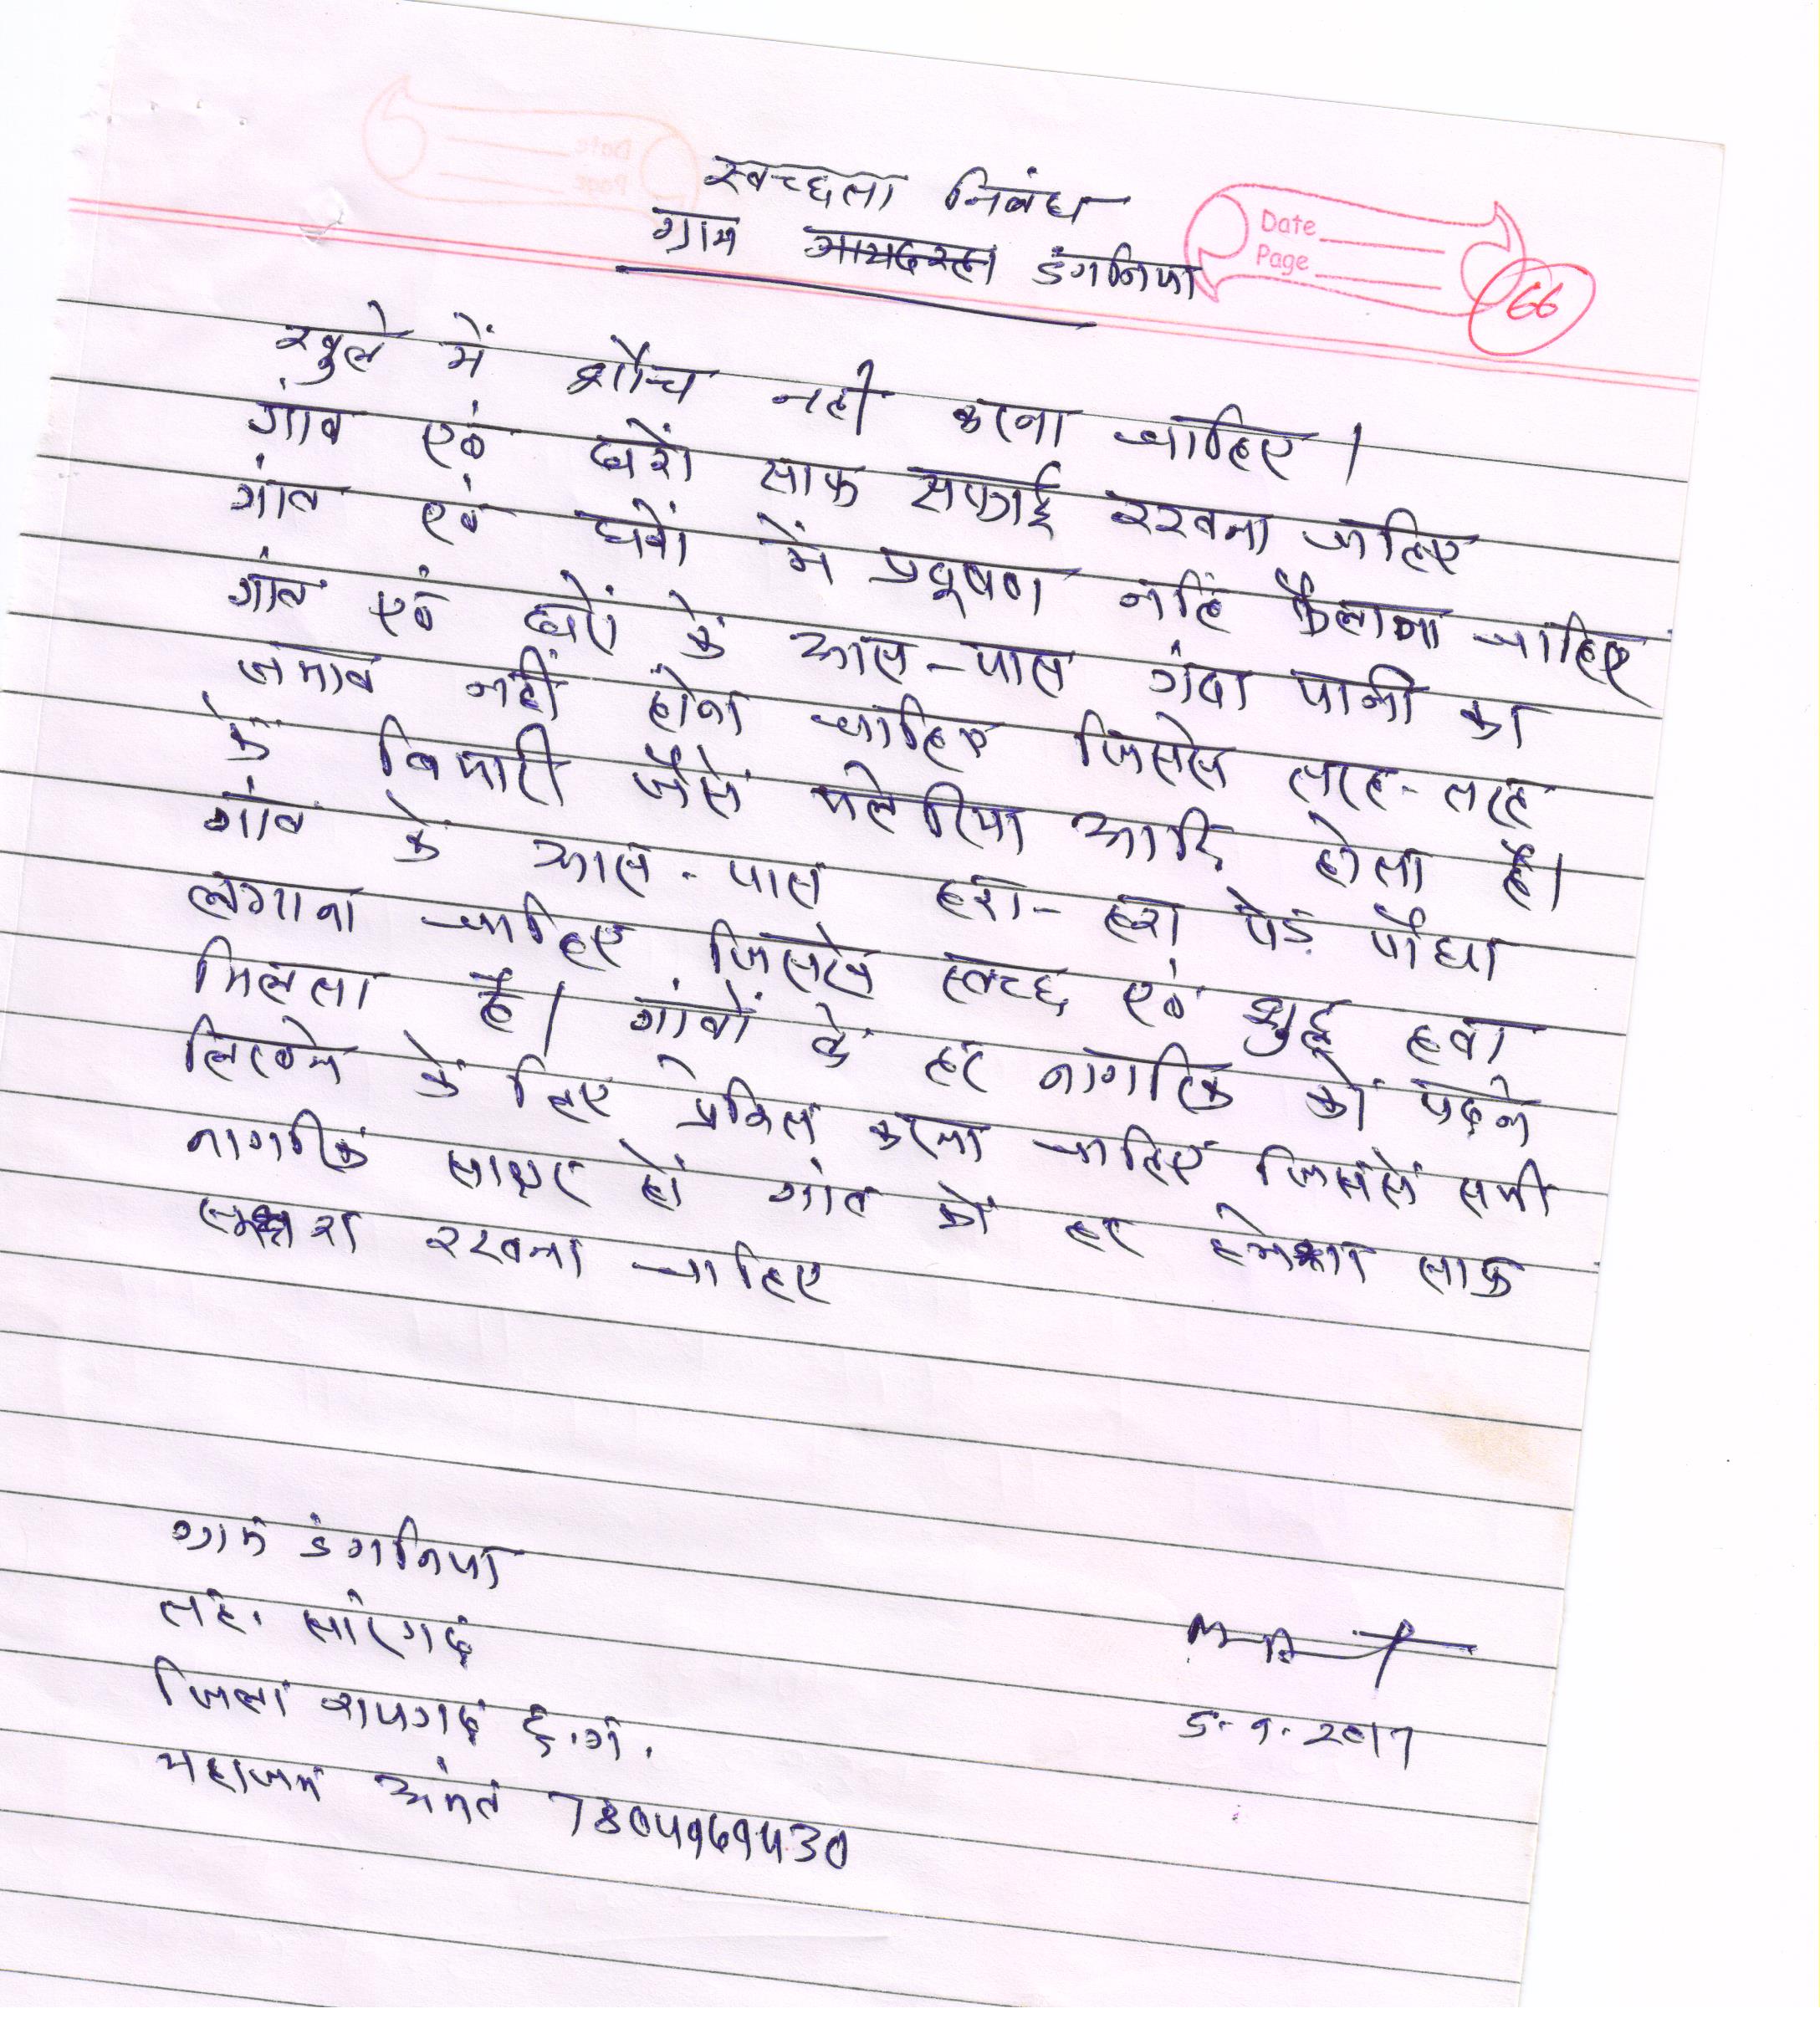 स्वच्छता निबंध
ग्राम डंगनिया
Date
Page
66
खुले में शौच नही करना चाहिए।
गांव एवं घरों साफ सफाई रखना चाहिए
गांव एवं घरों में प्रदूषण नहिं फैलाना चाहिए
गांव एवं घरों के आस-पास गंदा पानी का
जमाव नहीं होना चाहिए जिससे तरह-तरह
के बिमारी जैसे मलेरिया आदि होता है।
गांव के आस-पास हरा-हरा पेड़ पौधा
लगाना चाहिए जिससे स्वच्छ एवं शुद्ध हवा
मिलता है। गांवों के हर नागरिक को पढ़ने
लिखने के लिए प्रेरित करना चाहिए जिससे सभी
नागरिक साक्षर हो गांव को हर हमेशा साफ
रखना चाहिए
ग्राम डंगनिया
तह. सारंगढ़
जिला रायगढ़ छ.ग.
5-9-2017
महाजन अंनत 7804969430